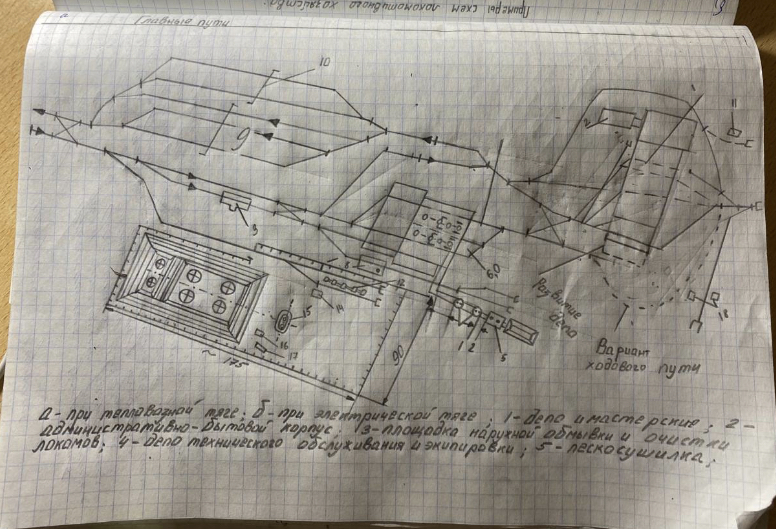 Примеры схем локомотивного хозяйства.
Главные пути
10
11
2
9
3
6,0
14
15
16
17
~ 175
90
1 2
5
Развитие
депо
Вариант
ходового пути
а - при тепловозной тяге; б - при электрической тяге; 1 - депо и мастерские; 2 -
административно-бытовой корпус. 3 - площадка наружной обмывки и очистки
локомов; 4 - депо технического обслуживания и экипировки; 5 - пескосушилка;